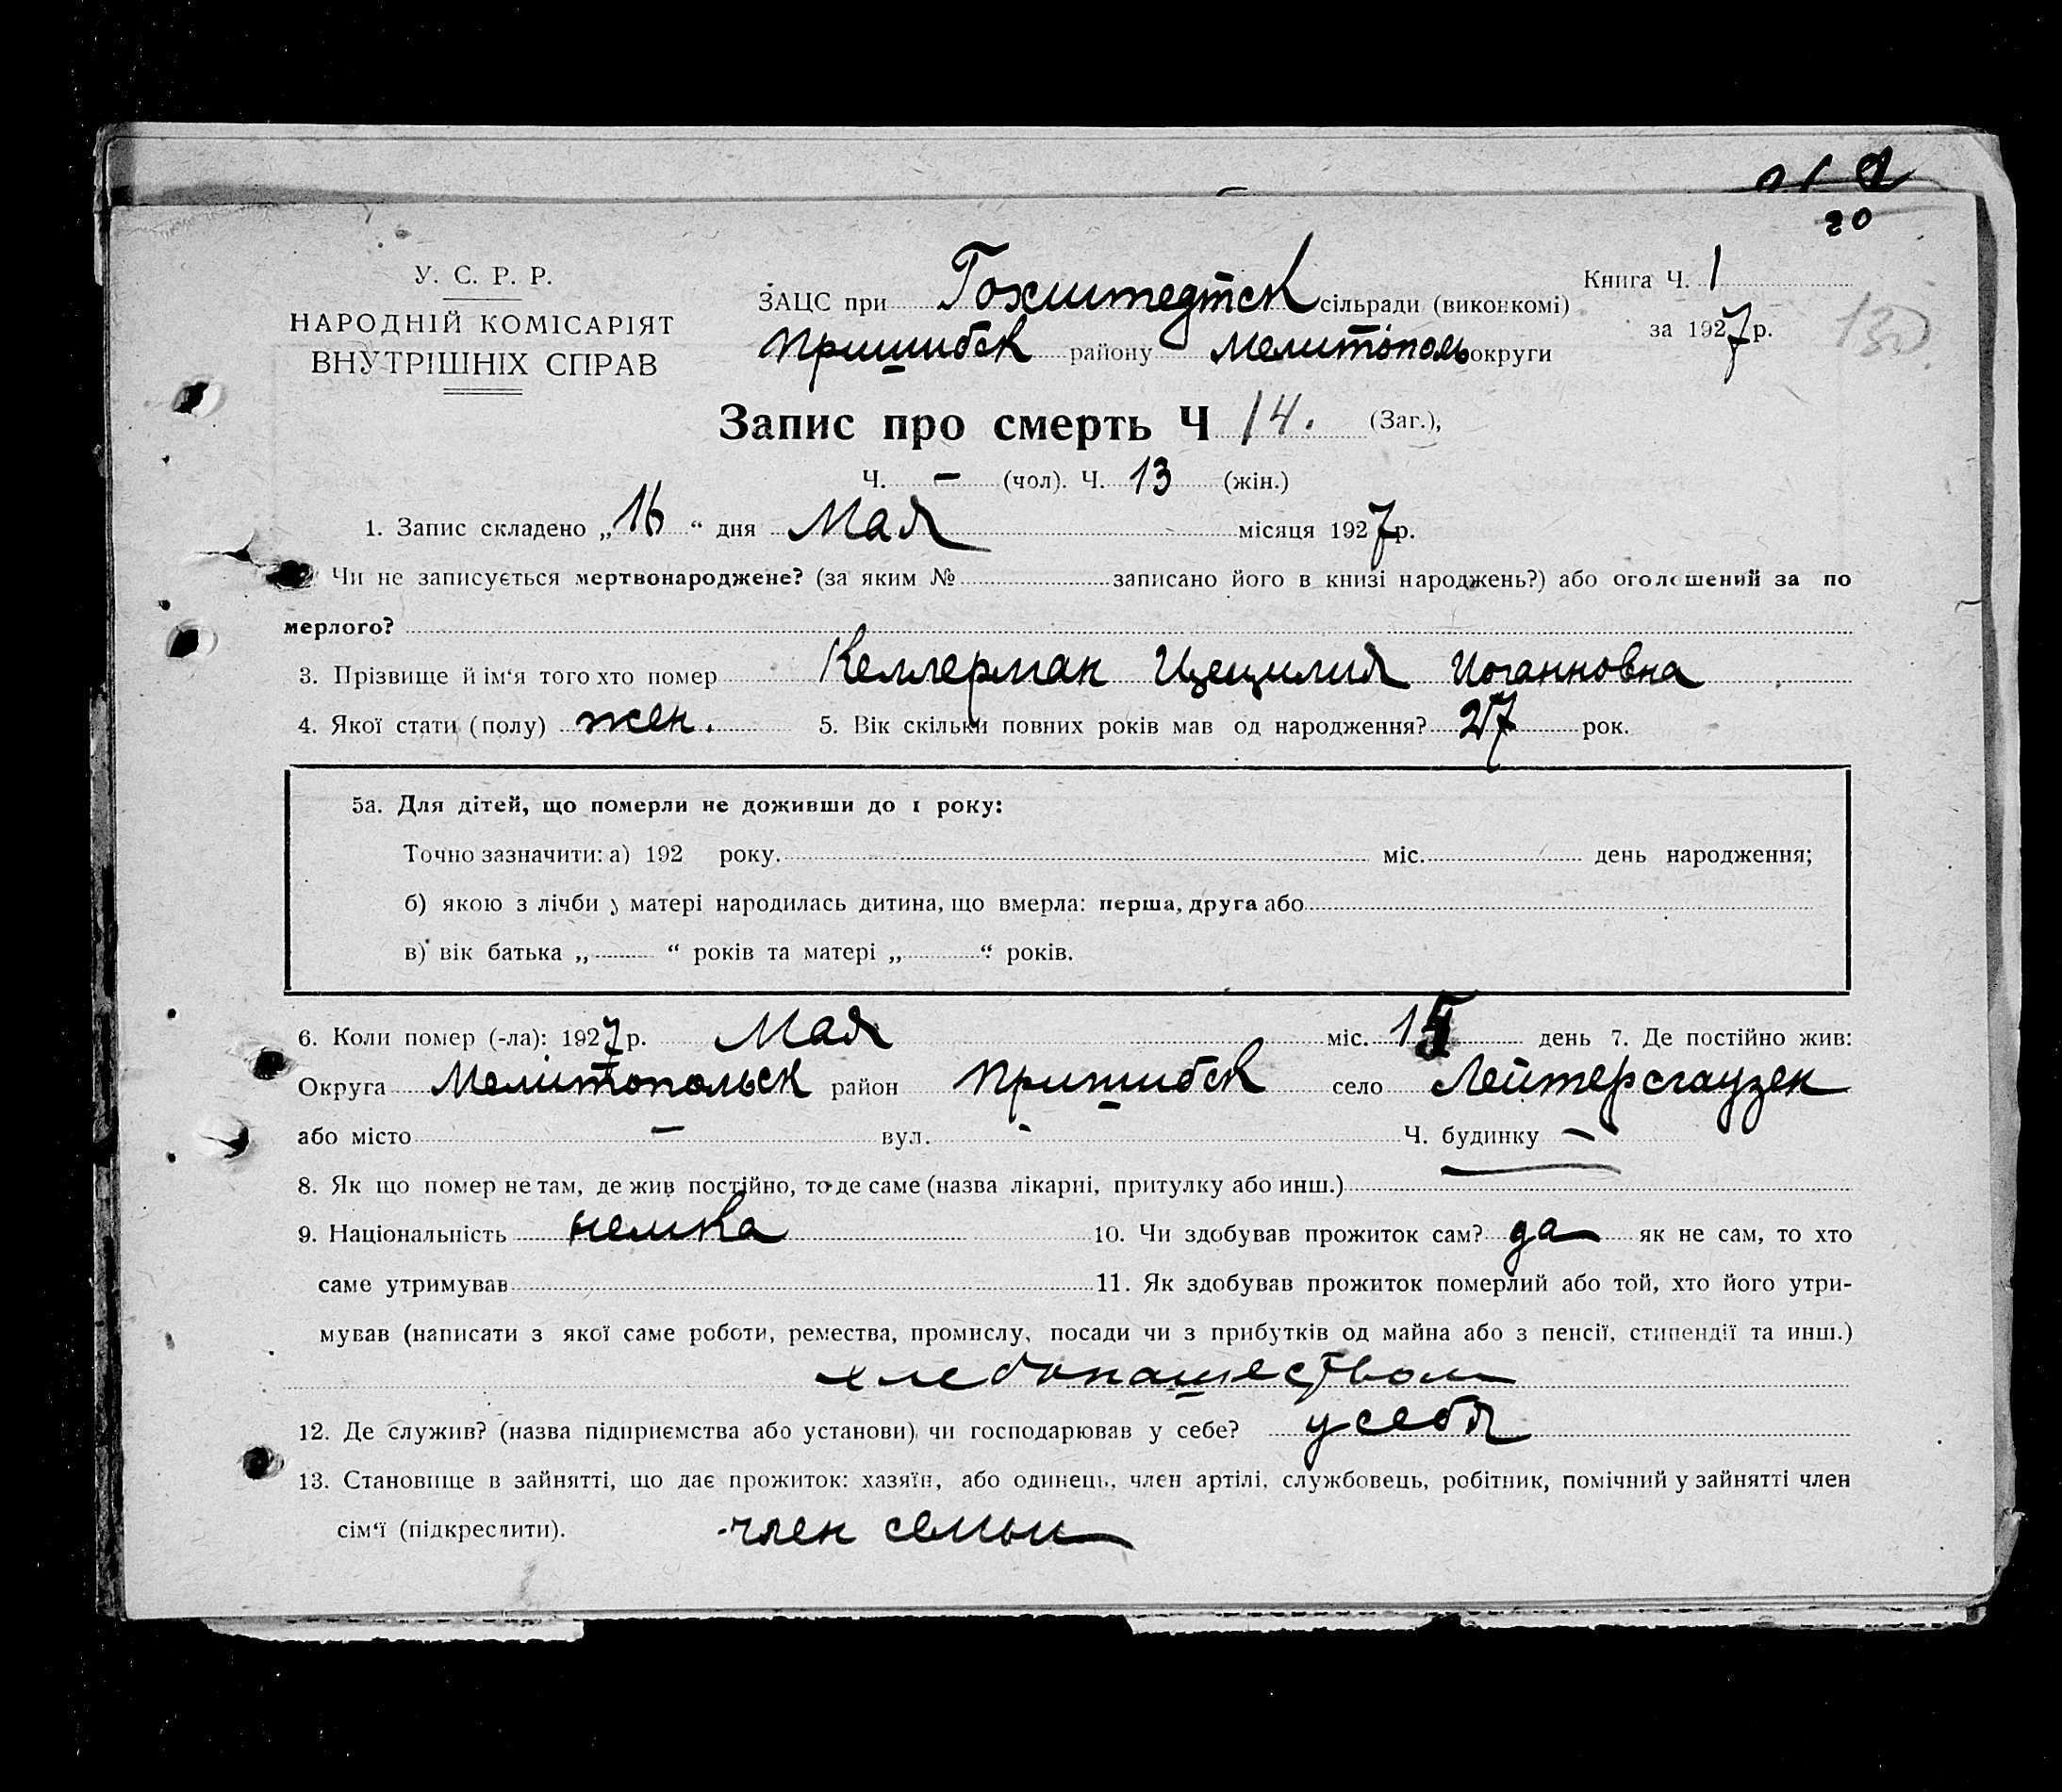 20
У. С. Р. Р.
НАРОДНІЙ КОМІСАРІЯТ
ВНУТРІШНІХ СПРАВ
ЗАЦС при Гохштедтск сільради (виконкомі)
Пришибск району Мелитополь округи
Книга Ч. 1
за 1927 р.
130
Запис про смерть Ч 14. (Заг.),
Ч. – (чол). Ч. 13 (жін.)
1. Запис складено „16“ дня Мая місяця 1927 р.
Чи не записується мертвонароджене? (за яким № записано його в книзі народжень?) або оголошений за по
мерлого?
3. Прізвище й ім‘я того хто помер Келлерман Цецилия Иоганновна
4. Якої стати (полу) жен. 5. Вік скільки повних років мав од народження? 27 рок.
5а. Для дітей, що померли не доживши до 1 року:
Точно зазначити: а) 192 року. міс. день народження;
б) якою з лічби у матері народилась дитина, що вмерла: перша, друга або
в) вік батька „ “ років та матері „ “ років.
6. Коли помер (-ла): 1927 р. Мая міс. 15 день 7. Де постійно жив:
Округа Мелітопольск район Пришибск село Лейтерсгаузен
або місто – вул. - Ч. будинку –
8. Як що помер не там, де жив постійно, то де саме (назва лікарні, притулку або инш.)
9. Національність немка 10. Чи здобував прожиток сам? да як не сам, то хто
саме утримував 11. Як здобував прожиток померлий або той, хто його утри-
мував (написати з якої саме роботи, ремества, промислу, посади чи з прибутків од майна або з пенсії, стипендії та инш.)
хлебопашеством
12. Де служив? (назва підприємства або установи) чи господарював у себе? у себя
13. Становище в зайнятті, що дає прожиток: хазяїн, або одинець, член артілі, службовець, робітник, помічний у зайнятті член
сім‘ї (підкреслити). член семьи